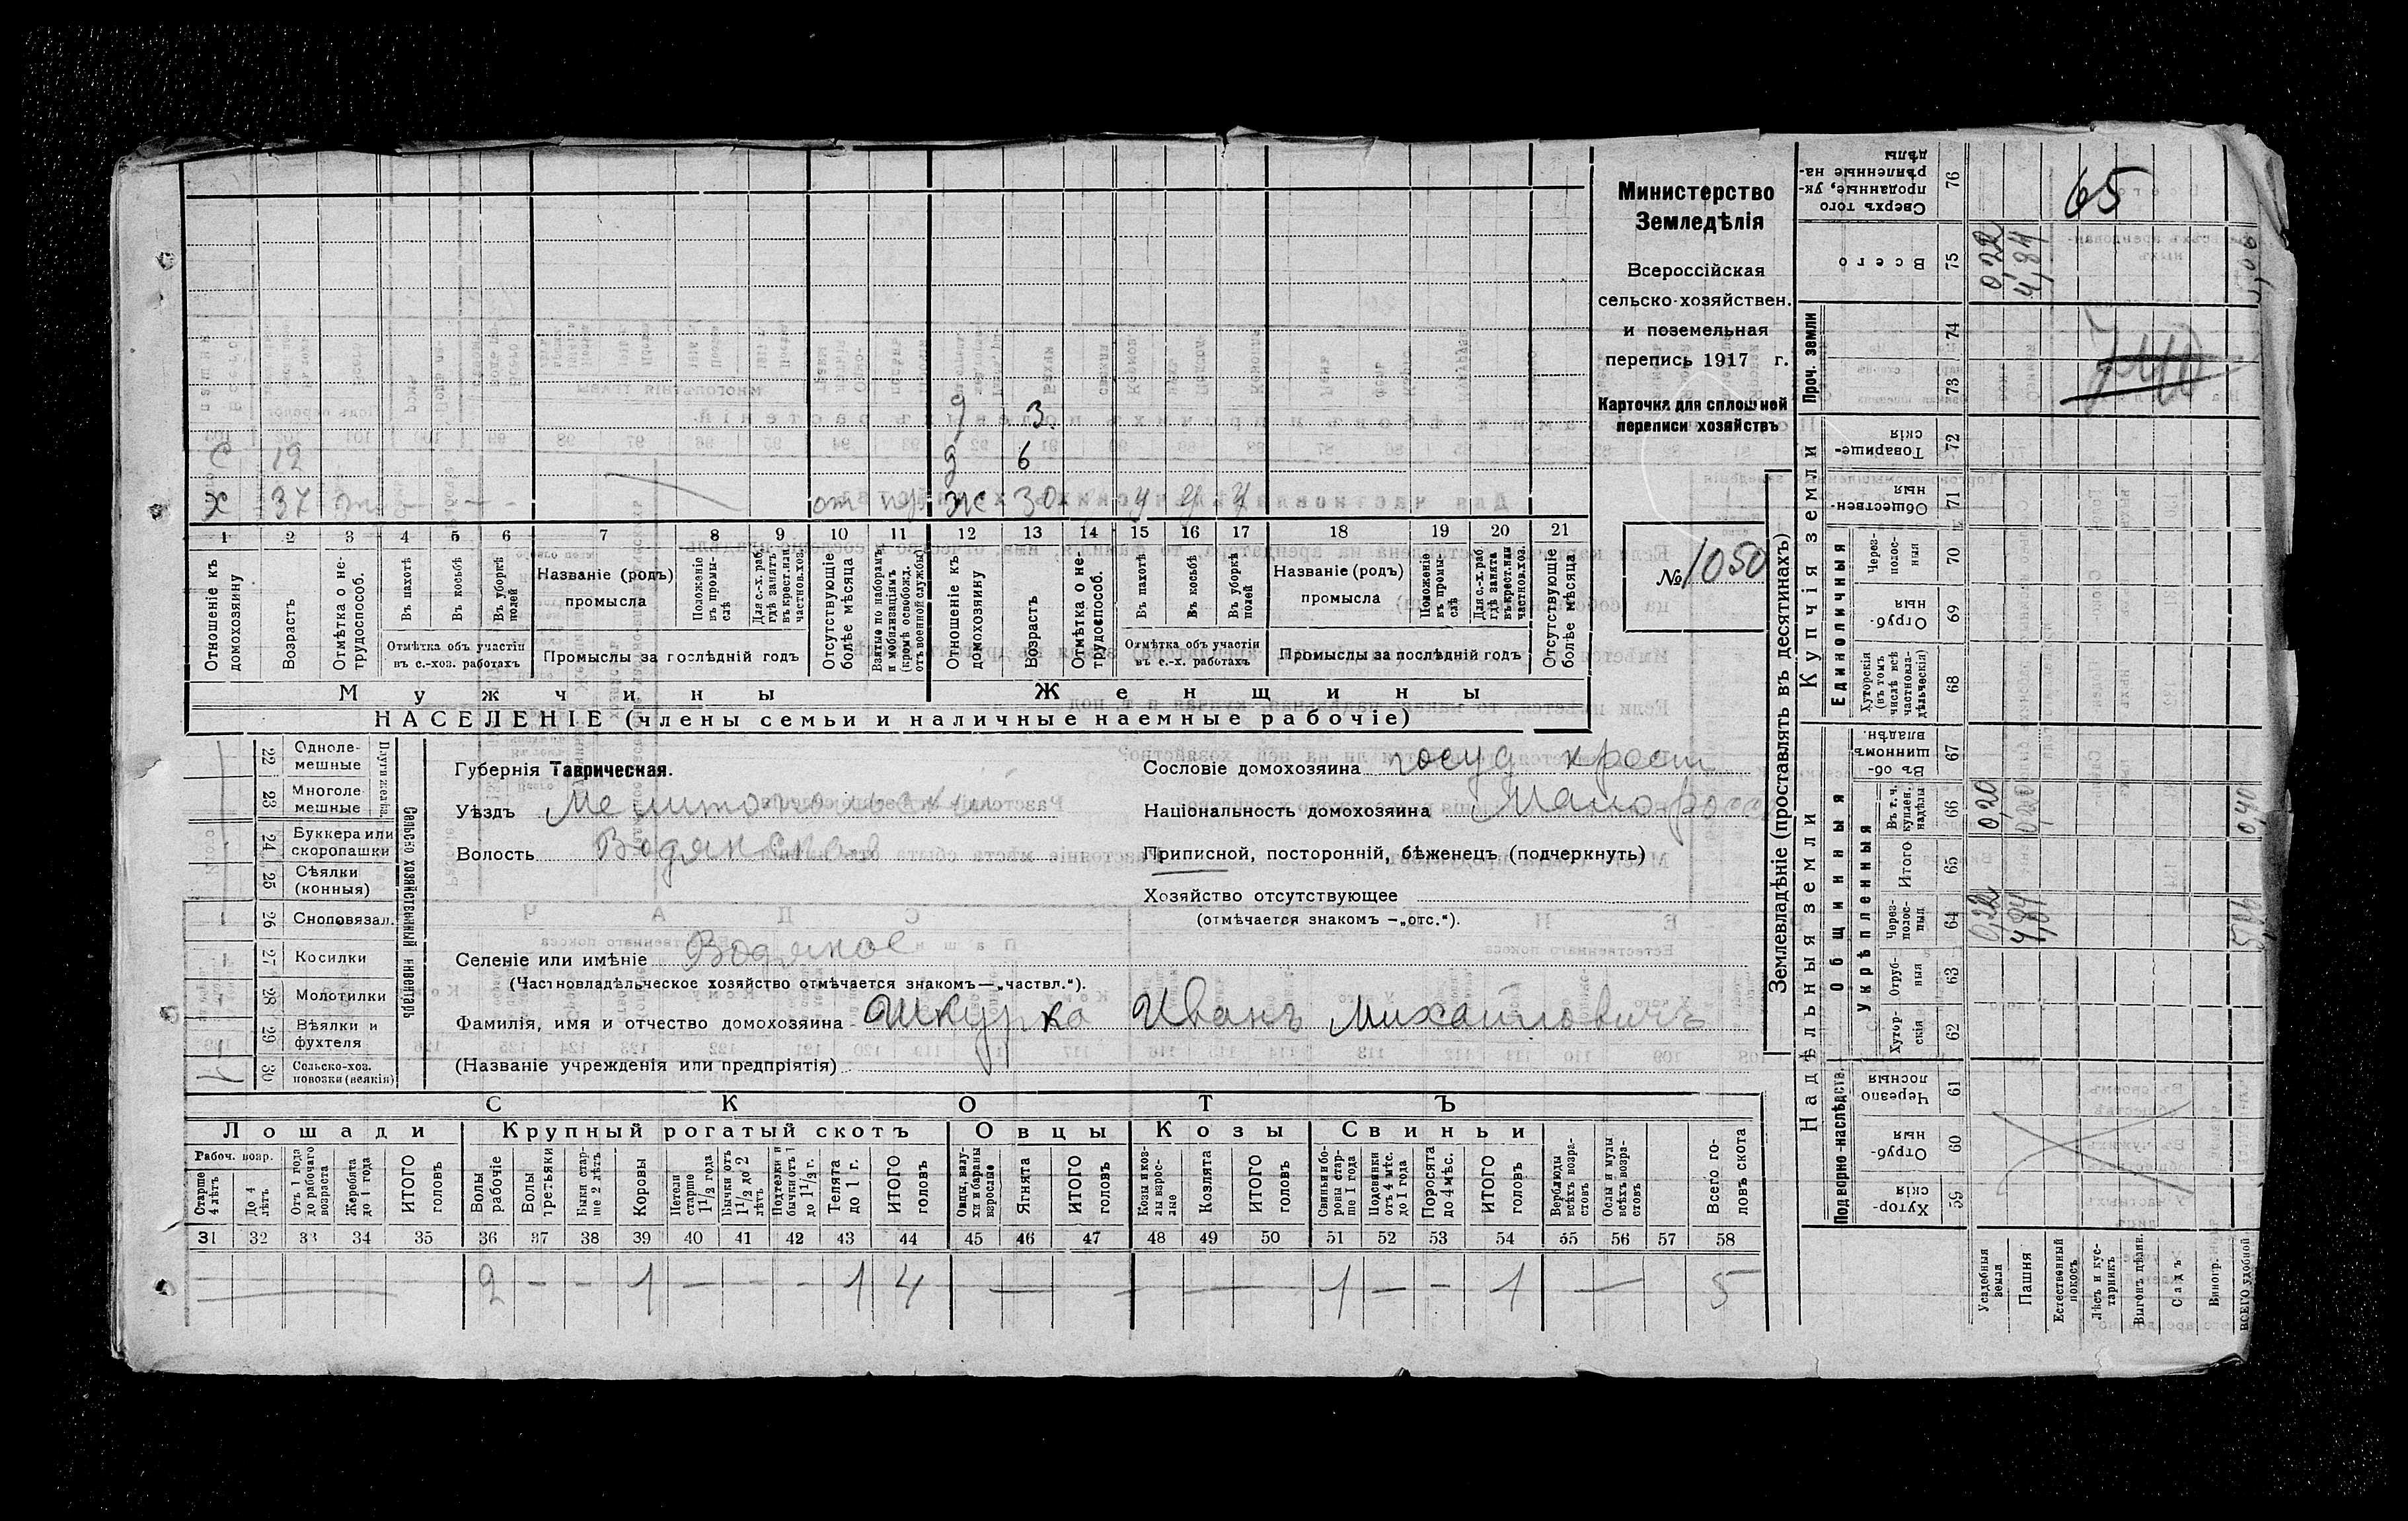 Министерство
Земледѣлія
Всероссійская
сельско-хозяйствен.
и поземельная
перепись 1917 г.
Карточка для сплошной
переписи хозяйствъ
№ 1050
д 3
С 12 д 6
х 37 — — - от ж 30 ч ч ч
1 2 3 4 5 6 7 8 9 10 11 12 13 14 15 16 17 18 19 20 21
Отношеніе къ домохозяину
Возрастъ
Отмѣтка о не-трудоспособ.
Въ пахотѣ
Въ косьбѣ
Въ уборкѣ полей
Отмѣтка объ участіи
въ с.-хоз. работахъ
Названіе (родъ)
промысла
Положеніе въ промы-слѣ
Для с.-х. раб. гдѣ занятъ въ крест. или частнов. хоз.
Промыслы за послѣдній годъ
Отсутствующіе болѣе мѣсяца
Взятые по наборамъ и мобилизаціямъ (кромѣ освобожд. отъ военной службы)
Отношеніе къ домохозяину
Возрастъ
Отмѣтка о не-трудоспособ.
Въ пахотѣ
Въ косьбѣ
Въ уборкѣ полей
Отмѣтка объ участіи
въ с.-х. работахъ
Названіе (родъ)
промысла
Положеніе въ промы-слѣ
Для с.-х. раб. гдѣ занята въ крест. или частнов. хоз.
Промыслы за послѣдній годъ
Отсутствующіе болѣе мѣсяца
Мужчины Женщины
НАСЕЛЕНІЕ (члены семьи и наличные наемные рабочіе)
Сельско хозяйственный инвентарь
22 Одноле-мешные
23 Многоле-мешные
24 Буккера или скоропашки
25 Сѣялки (конныя)
26 Сноповязал.
27 Косилки
28 Молотилки
29 Вѣялки и фухтеля
30 Сельско-хоз. повозки (всякія) 1
Губернія Таврическая.
Уѣздъ Мелитопольскій
Волость Водянская
Селеніе или имѣніе Водяное
(Частновладѣльческое хозяйство отмѣчается знакомъ—„частвл.“).
Фамилія, имя и отчество домохозяина Шкурка Иванъ Михайловичъ
(Названіе учрежденія или предпріятія)
Сословіе домохозяина госуд крест
Національность домохозяина Малоросс
Приписной, посторонній, бѣженецъ (подчеркнуть)
Хозяйство отсутствующее
(отмѣчается знакомъ —„отс.“).
СКОТЪ
Лошади Крупный рогатый скотъ Овцы Козы Свиньи
Рабоч. возр.
Старше 4 лѣтъ
До 4 лѣтъ
Отъ 1 года до рабочаго возраста
Жеребята до 1 года
ИТОГО головъ
Волы рабочіе
Волы третьяки
Быки стар-ше 2 лѣтъ
Коровы
Нетели старше 1½ года
Бычки отъ 1½ до 2 лѣтъ
Подтелки и бычки отъ 1 до 1½ г.
Телята до 1 г.
ИТОГО головъ
Овцы, валу-хи и бараны взрослые
Ягнята
ИТОГО головъ
Козы и коз-лы взрос-лые
Козлята
ИТОГО головъ
Свиньи и бо-ровы стар-ше 1 года
Подсвинки отъ 4 мѣс. до 1 года
Поросята до 4 мѣс.
ИТОГО головъ
Верблюды всѣхъ возра-стовъ
Ослы и мулы всѣхъ возра-стовъ
Всего го-ловъ скота
31 32 33 34 35 36 37 38 39 40 41 42 43 44 45 46 47 48 49 50 51 52 53 54 55 56 57 58
2 - - 1 — - - 1 4 — — — 1 — - 1 — 5
Землевладѣніе (проставлять въ десятинахъ)
Купчія земли
Надѣльныя земли
Проч. земли
Единоличныя
Общинныя
Укрѣпленныя
Подворно-наслѣдств.
Сверхъ того проданные, ук-рѣпленные на-дѣлы 76
65
Всего 75 0,22 4,84 5,06
74
73
Товарище-скія 72
Обществен-ныя 71
Через-полос-ныя 70
Отруб-ныя 69
Хуторскія (въ томъ числѣ всѣ частновла-дѣльческія) 68
Въ об-щинномъ владѣн. 67
Въ т. ч. куплен. надѣлы 66 0,20 0,20 0,40
Итого 65
Через-полос-ныя 64 0,22 4,84
Отруб-ныя 63
Хутор-скія 62
Черезпо лосныя 61
Отруб-ныя 60
Хутор-скія 59
Усадебныя земля
Пашня
Естественный покосъ
Лѣсъ и кус-тарникъ
Выгонъ дѣлин.
Садъ
Виногр.
ВСЕГО удобной